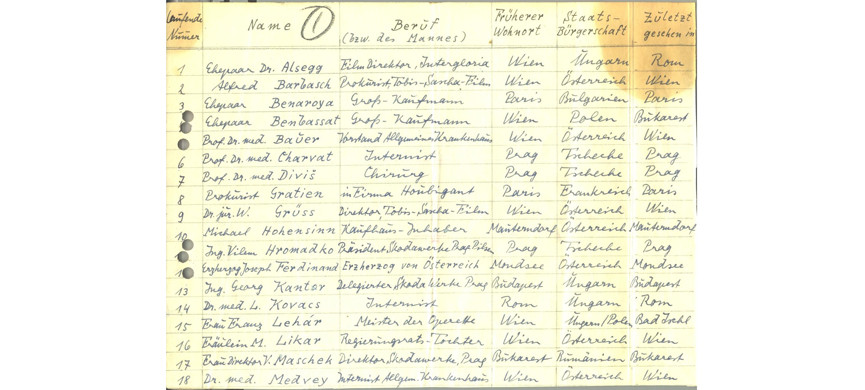 Laufende Numer Name 1 Beruf (bzw. des Mannes) Früherer Wohnort Staats-Bürgerschaft Zuletzt gesehen in
1 Ehepaar Dr. Alsegg Film Direktor, Intergloria Wien Ungarn Rom
2 Alfred Barbasch Prokurist, Tobis-Sascha-Film Wien Österreich Wien
3 Ehepaar Benaroya Groß-Kaufmann Paris Bulgarien Paris
Ehepaar Benbassat Groß-Kaufmann Wien Polen Bukarest
Prof. Dr. med. Bauer Vorstand Allgemeines Krankenhaus Wien Österreich Wien
6 Prof. Dr. med. Charvat Internist Prag Tscheche Prag
7 Prof. Dr. med. Diviš Chirurg Prag Tscheche Prag
8 Prokurist Gratien in Firma Houbigant Paris Frankreich Paris
9 Dr. jur. W. Grüss Direktor, Tobis-Sascha-Film Wien Österreich Wien
10 Michael Hohensinn Kaufhaus-Inhaber Mauterndorf Österreich Mauterndorf
Ing. Vilem Hromadko Präsident, Skodawerke, Prag, Pilsen Prag Tscheche Prag
Erzherzog Joseph Ferdinand Erzherzog von Österreich Mondsee Österreich Mondsee
13 Ing. Georg Kantor Delegierter Skoda Werke Prag Budapest Ungarn Budapest
14 Dr. med. L. Kovacs Internist Rom Ungarn Rom
15 Frau Franz Lehár Meister der Operette Wien Ungarn/Polen Bad Ischl
16 Fräulein M. Likar Regierungsrats-Tochter Wien Österreich Wien
17 Frau Direktor V. Maschek Direktor Skodawerke, Prag Bukarest Rumänien Bukarest
18 Dr. med. Medvey Internist Allgem. Krankenhaus Wien Österreich Wien